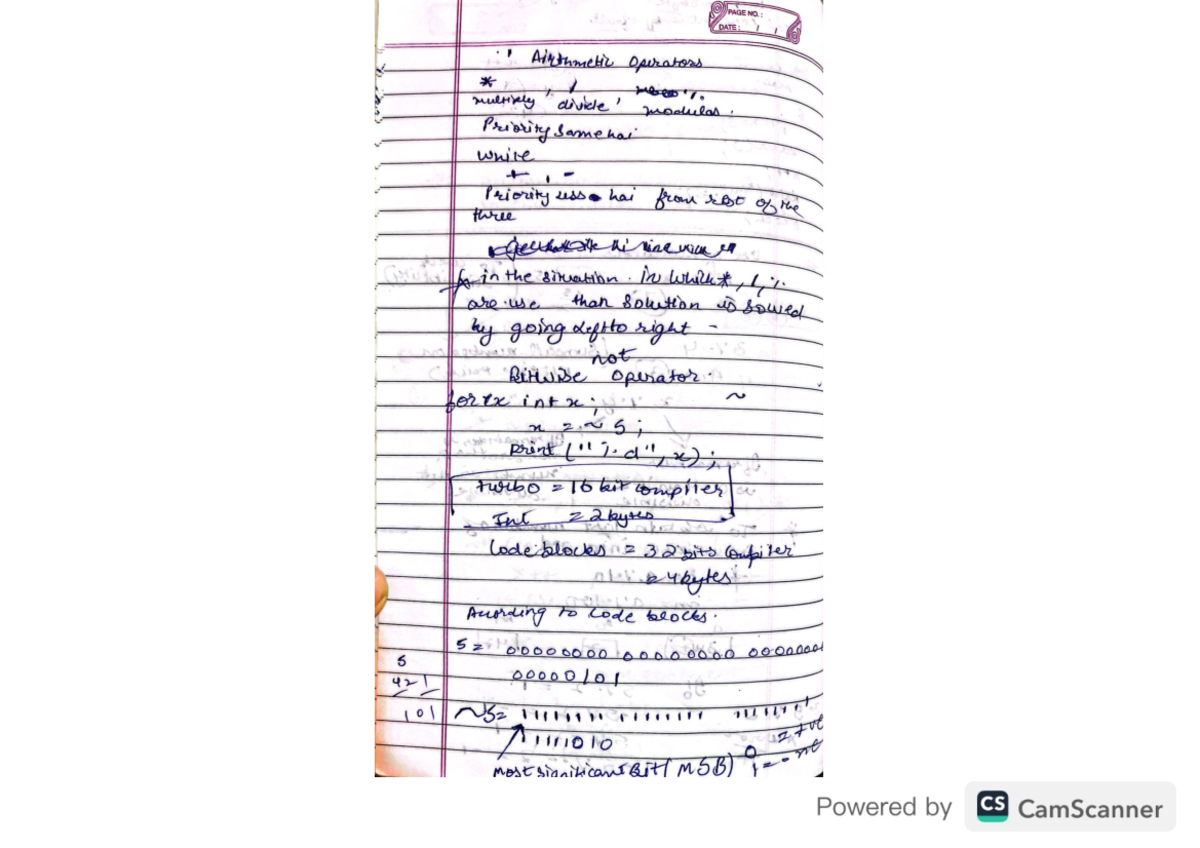 PAGE NO.:
DATE: / /
Airthmetic Operators
* , / %.
multiply divide, modulas.
Priority Same hai
while
+ , -
Priority less hai from rest of the
three
in the situation. in which *, /, %.
are use than Solution is solved
by going left to right -
not
Bitwise Operator. ~
for ex int x;
x = ~ 5;
Print ("%.d", x);
turbo = 16 bit compiler
Int = 2 bytes
Code blocks = 32 bits Compiler
= 4 bytes
According to Code blocks.
5 = 00000000 00000000 00000000
5
00000101
421
101 ~5= 11111111 11111111 11111111
11111010
0 = +ve
Most significant Bit (MSB) 1 = -ve
Powered by CS CamScanner